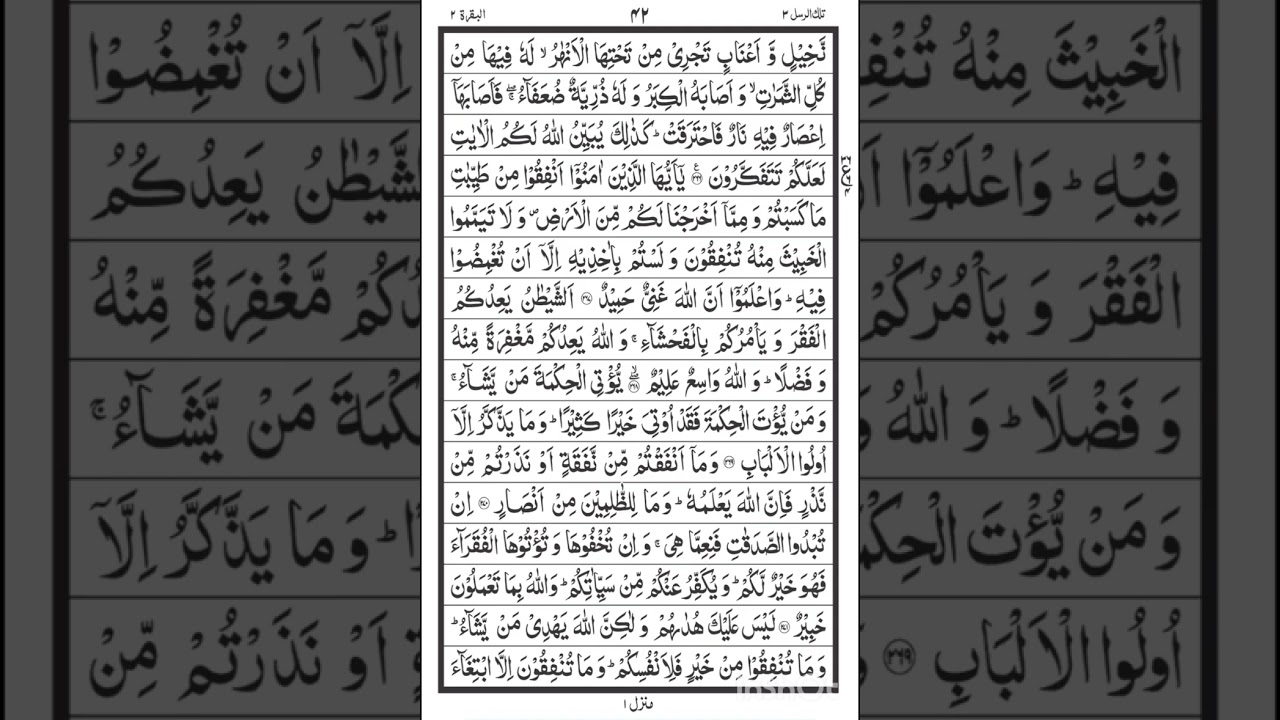 تلك الرسل ٣
۴۲
البقرة ٢
نَّخِيْلٍ وَّ اَعْنَابٍ تَجْرِیْ مِنْ تَحْتِهَا الْاَنْهٰرُ ۙ لَهٗ فِيْهَا مِنْ
كُلِّ الثَّمَرٰتِ ۙ وَ اَصَابَهُ الْكِبَرُ وَ لَهٗ ذُرِّيَّةٌ ضُعَفَآءُ ۖۚ فَاَصَابَهَاۤ
اِعْصَارٌ فِيْهِ نَارٌ فَاحْتَرَقَتْ ؕ كَذٰلِكَ يُبَيِّنُ اللّٰهُ لَكُمُ الْاٰيٰتِ
لَعَلَّكُمْ تَتَفَكَّرُوْنَ ۟ يٰۤاَيُّهَا الَّذِيْنَ اٰمَنُوْۤا اَنْفِقُوْا مِنْ طَيِّبٰتِ
مَا كَسَبْتُمْ وَ مِمَّاۤ اَخْرَجْنَا لَكُمْ مِّنَ الْاَرْضِ ۪ وَ لَا تَيَمَّمُوا
الْخَبِيْثَ مِنْهُ تُنْفِقُوْنَ وَ لَسْتُمْ بِاٰخِذِيْهِ اِلَّاۤ اَنْ تُغْمِضُوْا
فِيْهِ ؕ وَاعْلَمُوْۤا اَنَّ اللّٰهَ غَنِیٌّ حَمِيْدٌ ۟ اَلشَّيْطٰنُ يَعِدُكُمُ
الْفَقْرَ وَ يَاْمُرُكُمْ بِالْفَحْشَآءِ ۚ وَ اللّٰهُ يَعِدُكُمْ مَّغْفِرَةً مِّنْهُ
وَ فَضْلًا ؕ وَ اللّٰهُ وَاسِعٌ عَلِيْمٌ ۟ۙ يُّؤْتِی الْحِكْمَةَ مَنْ يَّشَآءُ ۚ
وَ مَنْ يُّؤْتَ الْحِكْمَةَ فَقَدْ اُوْتِیَ خَيْرًا كَثِيْرًا ؕ وَ مَا يَذَّكَّرُ اِلَّاۤ
اُولُوا الْاَلْبَابِ ۟ وَ مَاۤ اَنْفَقْتُمْ مِّنْ نَّفَقَةٍ اَوْ نَذَرْتُمْ مِّنْ
نَّذْرٍ فَاِنَّ اللّٰهَ يَعْلَمُهٗ ؕ وَ مَا لِلظّٰلِمِيْنَ مِنْ اَنْصَارٍ ۟ اِنْ
تُبْدُوا الصَّدَقٰتِ فَنِعِمَّا هِیَ ۚ وَ اِنْ تُخْفُوْهَا وَ تُؤْتُوْهَا الْفُقَرَآءَ
فَهُوَ خَيْرٌ لَّكُمْ ؕ وَ يُكَفِّرُ عَنْكُمْ مِّنْ سَيِّاٰتِكُمْ ؕ وَاللّٰهُ بِمَا تَعْمَلُوْنَ
خَبِيْرٌ ۟ لَيْسَ عَلَيْكَ هُدٰىهُمْ وَ لٰكِنَّ اللّٰهَ يَهْدِیْ مَنْ يَّشَآءُ ؕ
وَ مَا تُنْفِقُوْا مِنْ خَيْرٍ فَلِاَنْفُسِكُمْ ؕ وَ مَا تُنْفِقُوْنَ اِلَّا ابْتِغَآءَ
منزل ١